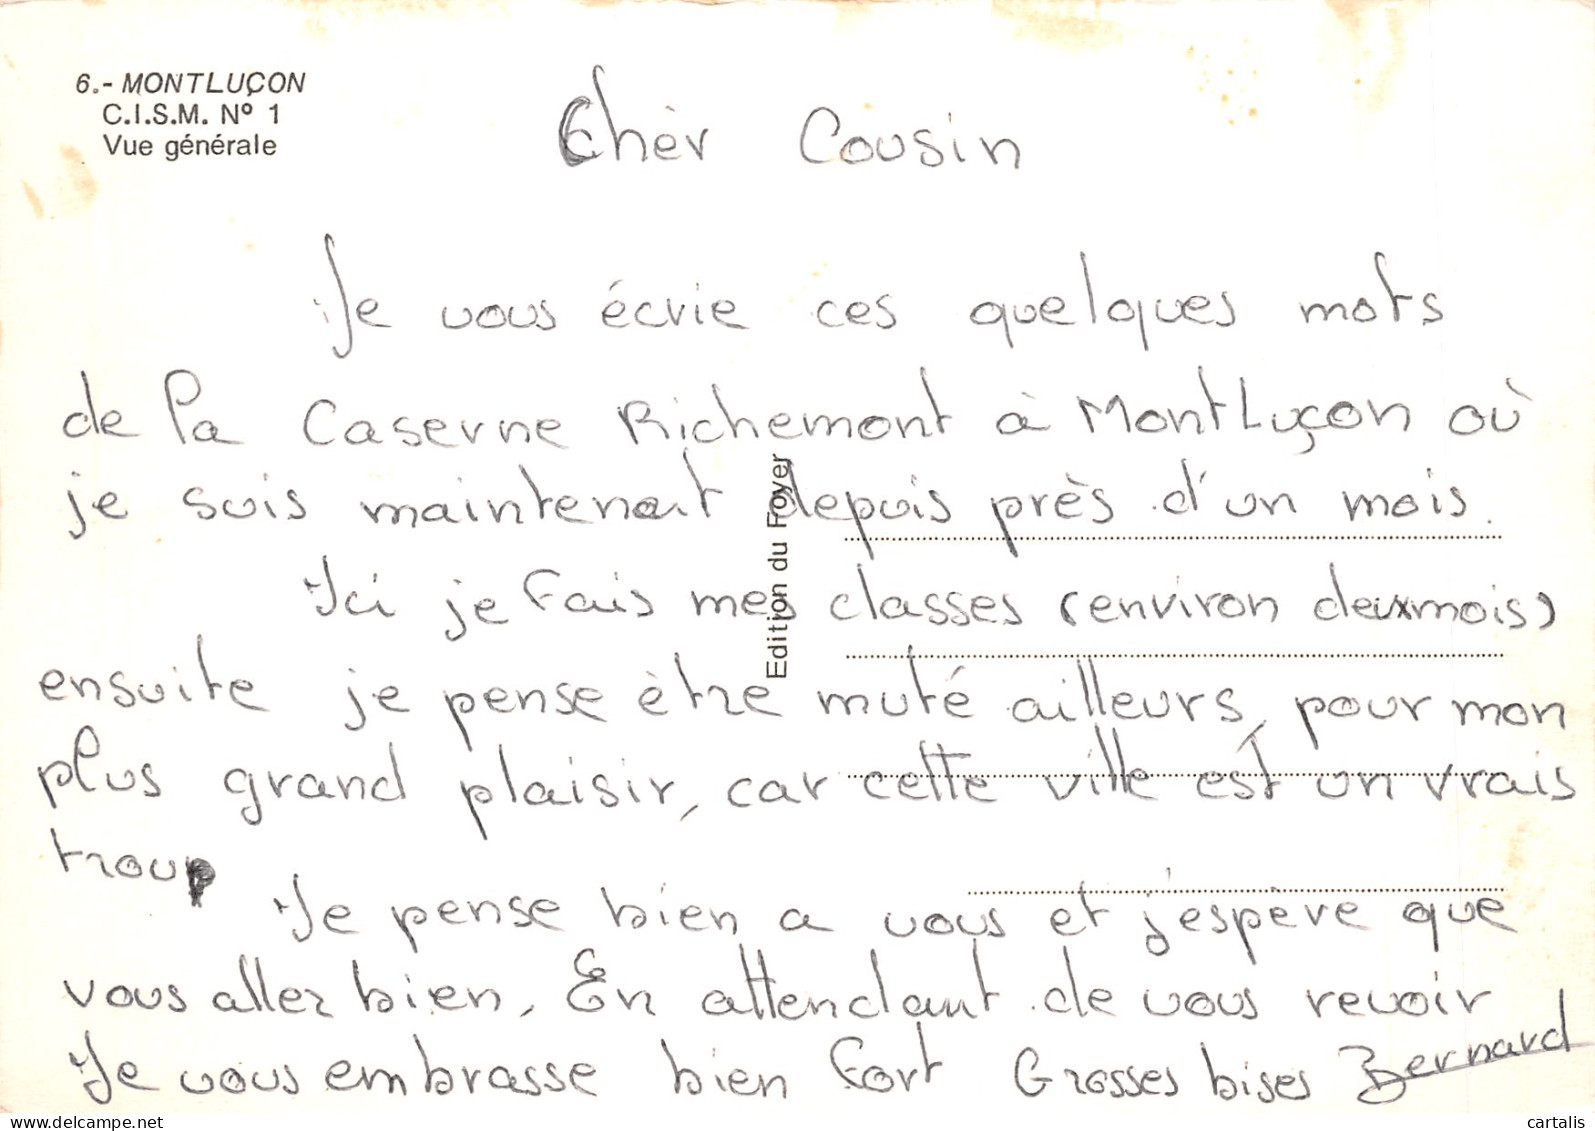 6.- MONTLUÇON
C.I.S.M. Nº 1
Vue générale
Chèr Cousin
Je vous écrie ces quelques mots
de la Caserne Richemont à MontLuçon où
je suis maintenant depuis près d'un mois.
Edition du Foyer
Ici je fais mes classes (environ deuxmois)
ensuite je pense ètre muté ailleurs, pour mon
plus grand plaisir, car cette ville ést un vrais
trou
Je pense bien a vous et j'espève que
vous aller bien, En attendant de vous revoir
Je vous embrasse bien fort Grosses bises Bernard
www.delcampe.net
cartalis